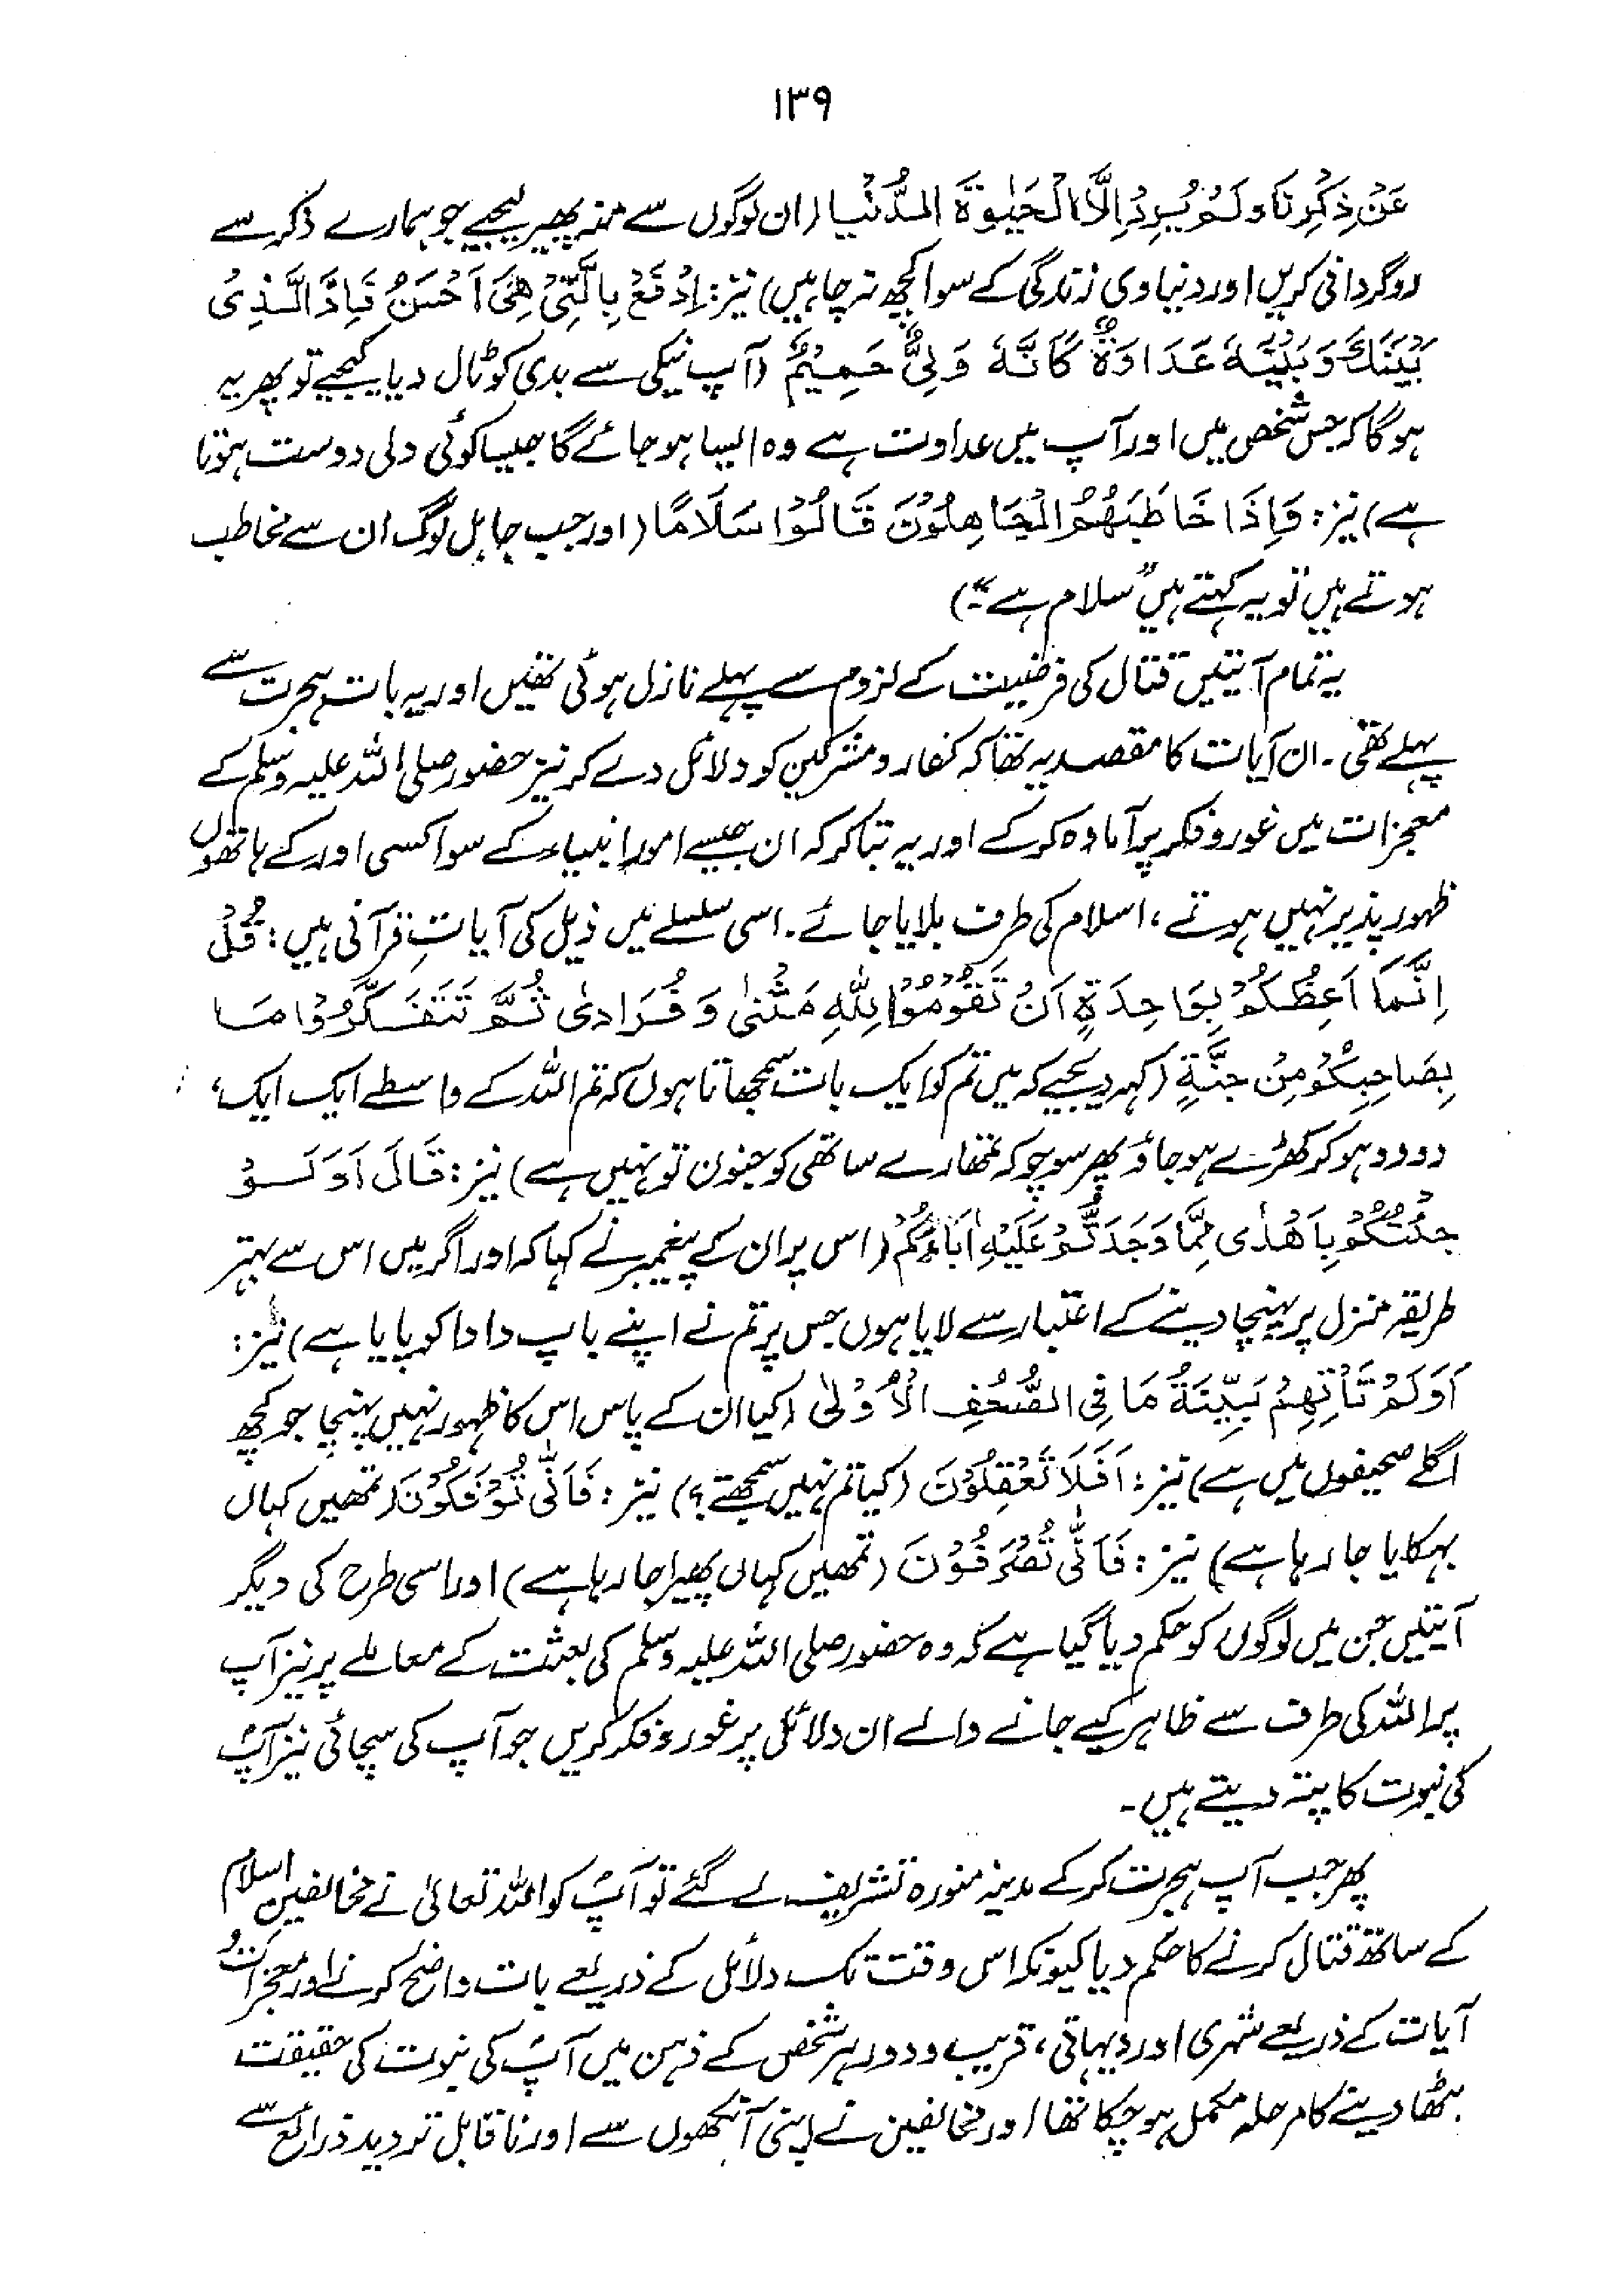 ۱۳۹
عَنْ ذِکْرِنَا وَلَمْ یُرِدْ اِلَّا الْحَیٰوةَ الدُّنْیَا (ان لوگوں سے منہ پھیر لیجیے جو ہمارے ذکر سے
روگردانی کریں اور دنیاوی زندگی کے سوا کچھ نہ چاہیں) نیز: اِدْفَعْ بِالَّتِیْ هِیَ اَحْسَنُ فَاِذَا الَّذِیْ
بَیْنَكَ وَبَیْنَهٗ عَدَاوَةٌ كَاَنَّهٗ وَلِیٌّ حَمِیْمٌ (آپ نیکی سے بدی کو ٹال دیا کیجیے تو پھر یہ
ہوگا کہ جس شخص میں اور آپ میں عداوت ہے وہ ایسا ہو جائے گا جیسا کوئی دلی دوست ہوتا
ہے) نیز: وَاِذَا خَاطَبَهُمُ الْجَاهِلُوْنَ قَالُوْا سَلَامًا (اور جب جاہل لوگ ان سے مخاطب
ہوتے ہیں تو یہ کہتے ہیں "سلام ہے"۔)
یہ تمام آیتیں قتال کی فرضیت کے لزوم سے پہلے نازل ہوئی تھیں اور یہ بات ہجرت سے
پہلے تھی۔ ان آیات کا مقصد یہ تھا کہ کفار و مشرکین کو دلائل دے کر نیز حضور صلی اللہ علیہ وسلم کے
معجزات میں غور و فکر پر آمادہ کر کے اور یہ بتا کر کہ ان جیسے امور انبیاء کے سوا کسی اور کے ہاتھوں
ظہور پذیر نہیں ہوتے، اسلام کی طرف بلایا جائے۔ اسی سلسلے میں ذیل کی آیاتِ قرآنی ہیں: قُلْ
اِنَّمَا اَعِظُكُمْ بِوَاحِدَةٍ اَنْ تَقُوْمُوْا لِلّٰهِ مَثْنٰی وَ فُرَادٰی ثُمَّ تَتَفَكَّرُوْا مَا
بِصَاحِبِكُمْ مِنْ جِنَّةٍ (کہہ دیجیے کہ میں تم کو ایک بات سمجھاتا ہوں کہ تم اللہ کے واسطے ایک ایک،
دو دو ہو کر کھڑے ہو جاؤ پھر سوچو کہ تمھارے ساتھی کو جنون تو نہیں ہے) نیز: قَالَ اَوَلَوْ
جِئْتُكُمْ بِاَهْدٰی مِمَّا وَجَدْتُّمْ عَلَیْهِ اٰبَاءَكُمْ (اس پر ان کے پیغمبر نے کہا کہ اور اگر میں اس سے بہتر
طریقہ منزل پر پہنچا دینے کے اعتبار سے لایا ہوں جس پر تم نے اپنے باپ دادا کو پایا ہے) نیز:
اَوَلَمْ تَاْتِهِمْ بَیِّنَةُ مَا فِی الصُّحُفِ الْاُوْلٰی (کیا ان کے پاس اس کا ظہور نہیں پہنچا جو کچھ
اگلے صحیفوں میں ہے) نیز: اَفَلَا تَعْقِلُوْنَ (کیا تم نہیں سمجھتے؟) نیز: فَاَنّٰی تُؤْفَكُوْنَ (تمھیں کہاں
بہکایا جا رہا ہے) نیز: فَاَنّٰی تُصْرَفُوْنَ (تمھیں کہاں پھیرا جا رہا ہے) اور اسی طرح کی دیگر
آیتیں جن میں لوگوں کو حکم دیا گیا ہے کہ وہ حضور صلی اللہ علیہ وسلم کی بعثت کے معاملے پر نیز آپ
پر اللہ کی طرف سے ظاہر کیے جانے والے ان دلائل پر غور و فکر کریں جو آپ کی سچائی نیز آپؐ
کی نبوت کا پتہ دیتے ہیں۔
پھر جب آپ ہجرت کر کے مدینہ منورہ تشریف لے گئے تو آپؐ کو اللہ تعالیٰ نے مخالفین اسلام
کے ساتھ قتال کرنے کا حکم دیا کیونکہ اس وقت تک دلائل کے ذریعے بات واضح کرنے اور معجزات و
آیات کے ذریعے شہری اور دیہاتی، قریب و دور ہر شخص کے ذہن میں آپؐ کی نبوت کی حقیقت
بٹھا دینے کا مرحلہ مکمل ہو چکا تھا اور مخالفین نے اپنی آنکھوں سے اور ناقابل تردید ذرائع سے